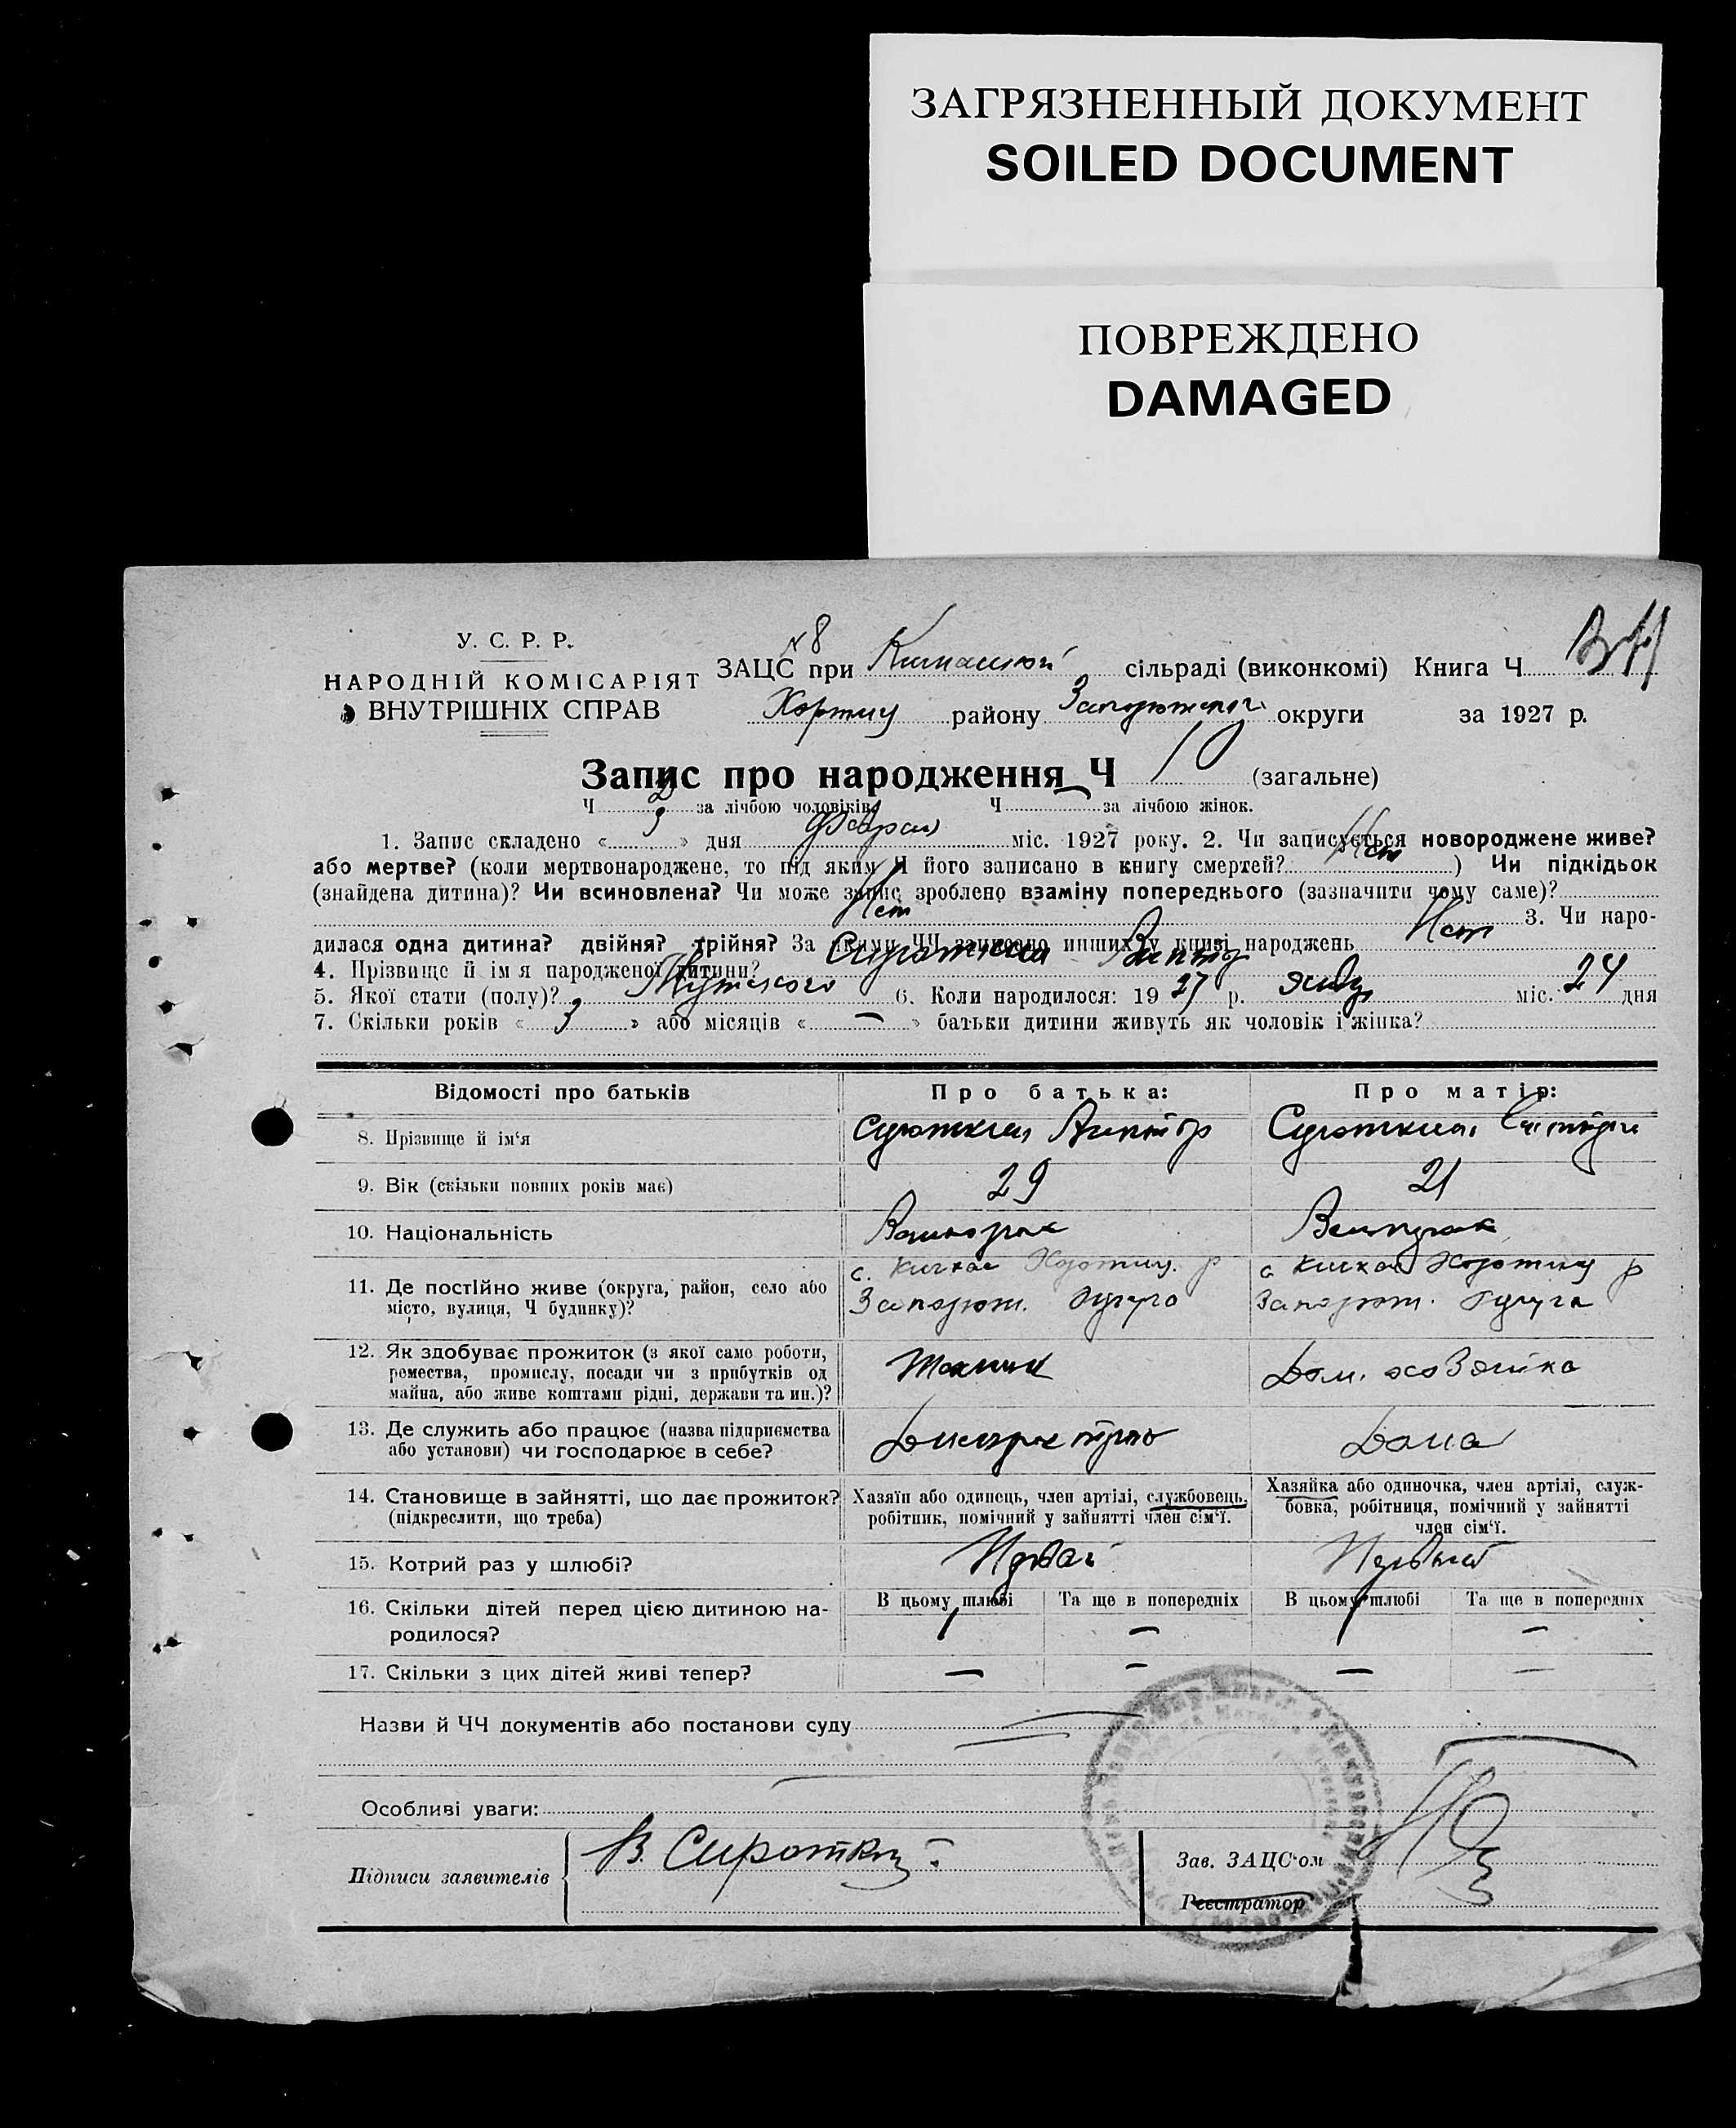 ЗАГРЯЗНЕННЫЙ ДОКУМЕНТ
SOILED DOCUMENT
ПОВРЕЖДЕНО
DAMAGED
У. С. Р. Р.
НАРОДНІЙ КОМІСАРІЯТ
ВНУТРІШНІХ СПРАВ
№ 8
ЗАЦС при сільраді (виконкомі) Книга Ч
району округи за 1927 р.
Запис про народження Ч 10 (загальне)
Ч за лічбою чоловіків Ч — за лічбою жінок.
1. Запис складено « 3 » дня міс. 1927 року. 2. Чи записується новороджене живе?
або мертве? (коли мертвонароджене, то під яким Ч його записано в книгу смертей? Нет ) Чи підкідьок
(знайдена дитина)? Чи всиновлена? Чи може запис зроблено взаміну попереднього (зазначити чому саме)?
Нет 3. Чи наро-
дилася одна дитина? двійня? трійня? За якими ЧЧ записано инших у книзі народжень Нет
4. Прізвище й ім я народженої дитини?
5. Якої стати (полу)? Мужского 6. Коли народилося: 19 27 р. янв міс. 24 дня
7. Скільки років « 3 » або місяців « — » батьки дитини живуть як чоловік і жінка?
Відомості про батьків Про батька: Про матір:
8. Прізвище й ім‘я
9. Вік (скільки повних років має) 29 21
10. Національність
11. Де постійно живе (округа, район, село або
місто, вулиця, Ч будинку)?
с. Кичкас Хортиц. р
Запорож. Округа
с Кичкас Хортиц р
Запорож. Округа
12. Як здобуває прожиток (з якої саме роботи,
ремества, промислу, посади чи з прибутків од
майна, або живе коштами рідні, держави та ин.)?
Техник
Дом. хозяйка
13. Де служить або працює (назва підприємства
або установи) чи господарює в себе?
Днепрострой
Дома
14. Становище в зайнятті, що дає прожиток?
(підкреслити, що треба)
Хазяїн або одинець, член артілі, службовець,
робітник, помічний у зайнятті член сім‘ї.
Хазяйка або одиночка, член артілі, служ-
бовка, робітниця, помічний у зайнятті
член сім‘ї.
15. Котрий раз у шлюбі? Первый Первый
16. Скільки дітей перед цією дитиною на-
родилося?
В цьому шлюбі Та ще в попередніх В цьому шлюбі Та ще в попередніх
1 — 1 —
17. Скільки з цих дітей живі тепер? — — — —
Назви й ЧЧ документів або постанови суду
Особливі уваги:
Підписи заявителів В. Сироткин
Зав. ЗАЦС‘ом
Реєстратор